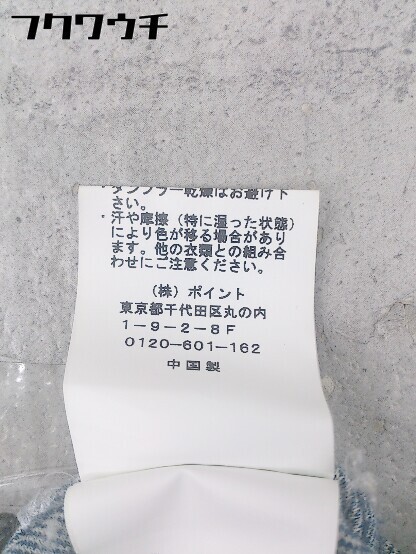 フクワウチ
・タンブラー乾燥はお避け下
さい。
・汗や摩擦（特に湿った状態）
により色が移る場合があり
ます。他の衣類との組み合
わせにご注意ください。
（株）ポイント
東京都千代田区丸の内
1－9－2－8F
0120－601－162
中国製